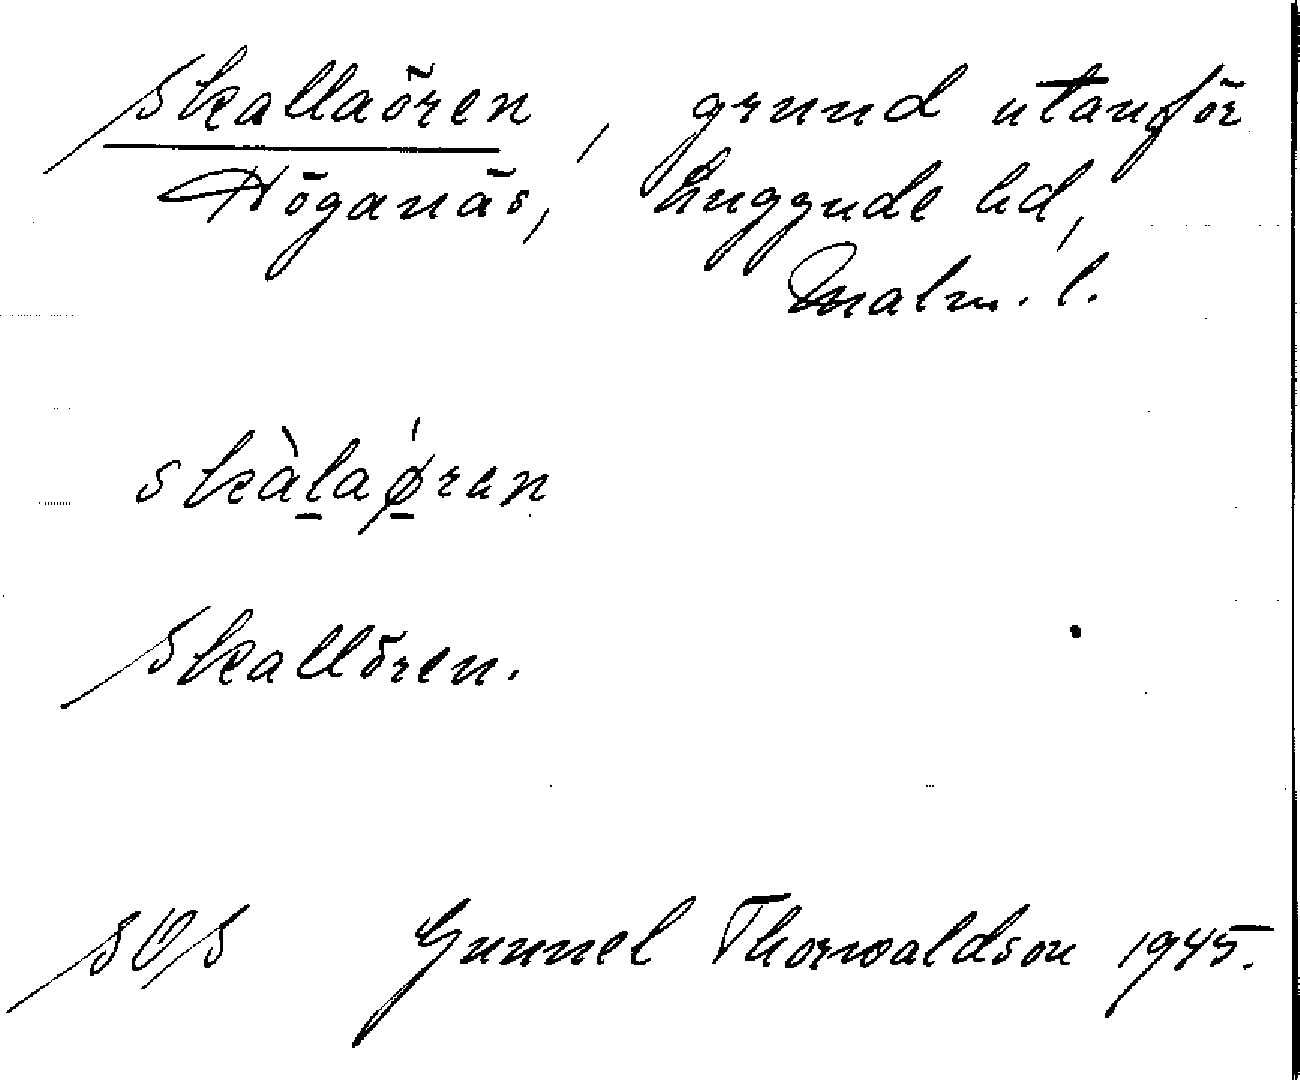 Skallaören, grund utanför
Höganäs, Luggude hd,
Malm. l.
skàlaǿren
Skallören.
SOS Gunnel Thorwaldson 1945.